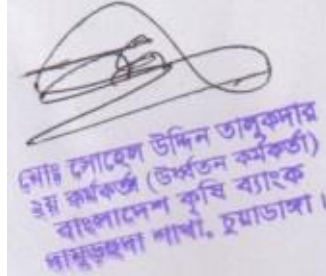 মোঃ সোহেল উদ্দিন তালুকদার
২য় কর্মকর্তা (উর্ধ্বতন কর্মকর্তা)
বাংলাদেশ কৃষি ব্যাংক
দামুড়হুদা শাখা, চুয়াডাঙ্গা।